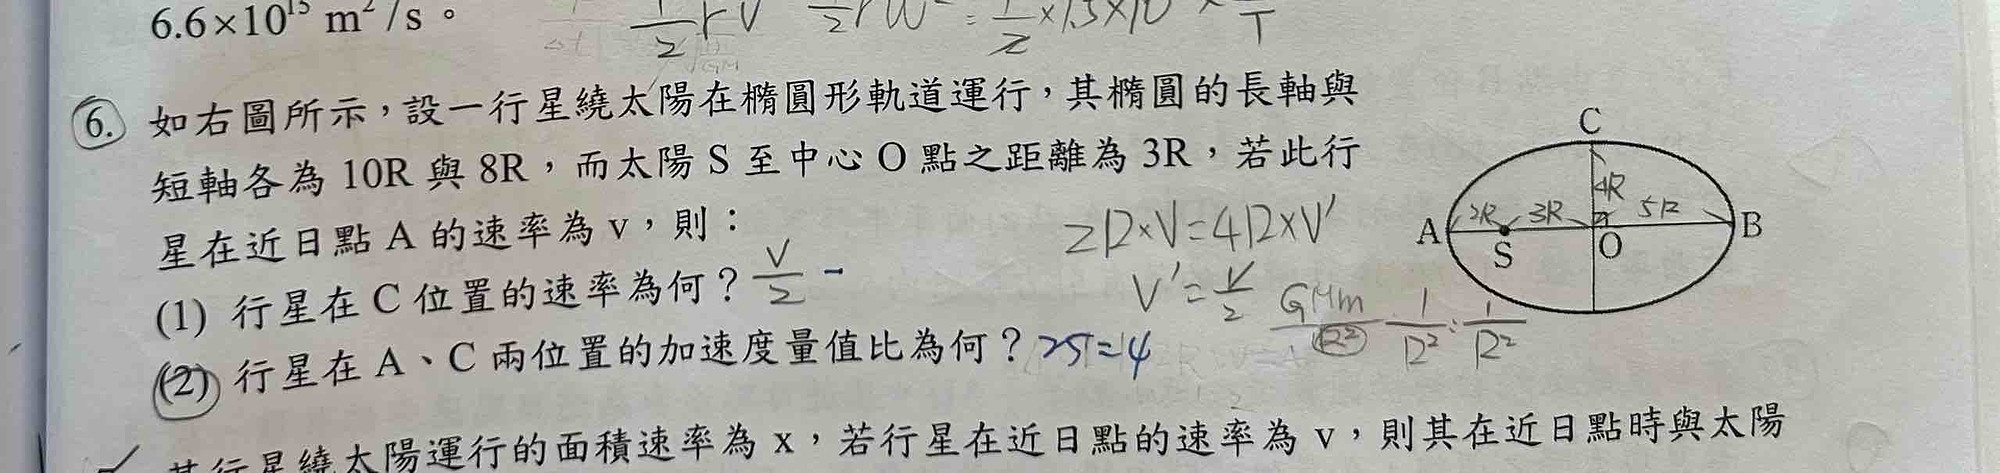 6.6×10¹⁵ m²/s。 1/2 rv 1/2 rω² = 1/2 ×1.5×10
6. 如右圖所示，設一行星繞太陽在橢圓形軌道運行，其橢圓的長軸與
短軸各為 10R 與 8R，而太陽 S 至中心 O 點之距離為 3R，若此行
星在近日點 A 的速率為 v，則：
2R×V=4R×V'
(1) 行星在 C 位置的速率為何？V/2
V'=V/2
(2) 行星在 A、C 兩位置的加速度量值比為何？25=4
GMm/R² 1/R² : 1/R²
C
4R
2R 3R 5R
A S O B
某行星繞太陽運行的面積速率為 x，若行星在近日點的速率為 v，則其在近日點時與太陽